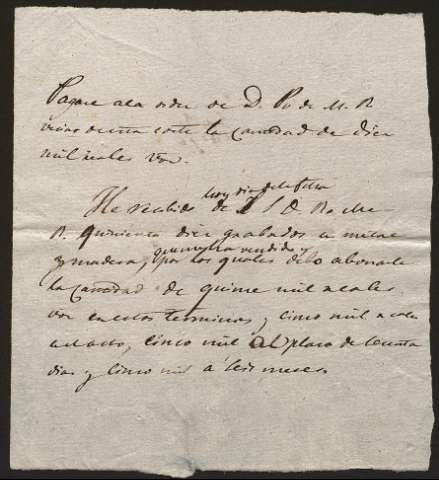 Pagare a la orden de D. Po de M. R
vecino de esta corte la cantidad de diez
mil reales von.
hoy dia de la fecha
He recibido de D. Ro Me
R. quinientos diez grabados en metal
que me ha vendido y
y madera, por los quales debo abonarle
la cantidad de quince mil reales
von en estos terminos, y cinco mil reales
al acto, cinco mil al plazo de
dias y cinco mil á seis meses.